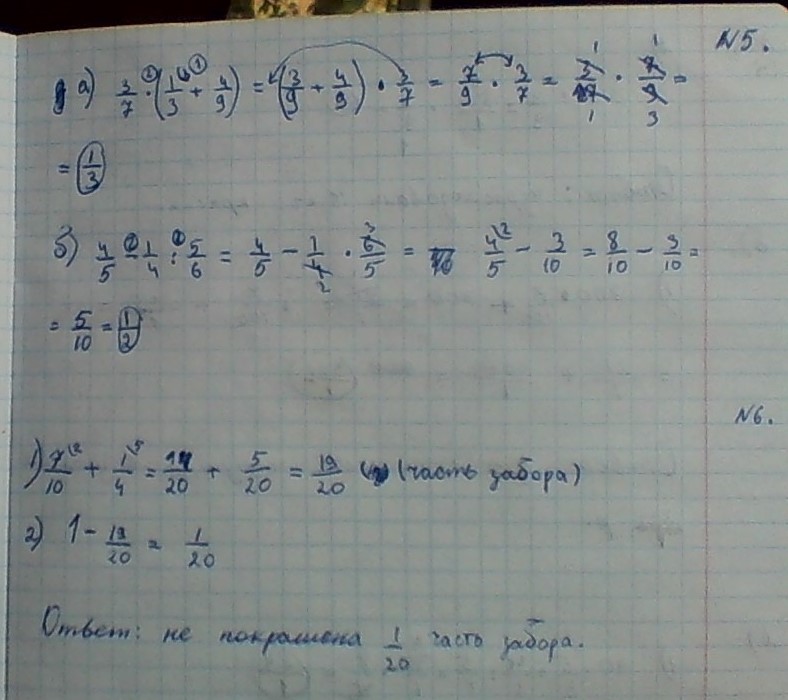 N5.
а) 3/7 · (1/3 + 4/9) = (3/9 + 4/9) · 3/7 = 7/9 · 3/7 = 3/7 · 7/9 =
= 1/3
б) 4/5 - 1/4 : 5/6 = 4/5 - 1/4 · 6/5 = 4/5 - 3/10 = 8/10 - 3/10 =
= 5/10 = 1/2
N6.
1) 7/10 + 1/4 = 14/20 + 5/20 = 19/20 (часть забора)
2) 1 - 19/20 = 1/20
Ответ: не покрашена 1/20 часть забора.